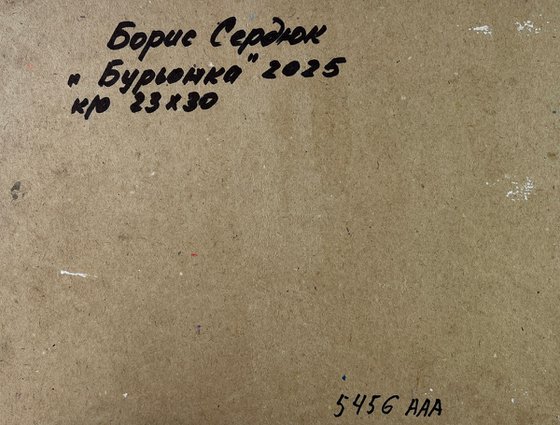 Борис Сердюк
„Бурьонка" 2025
к/о 23х30
5456 ААА